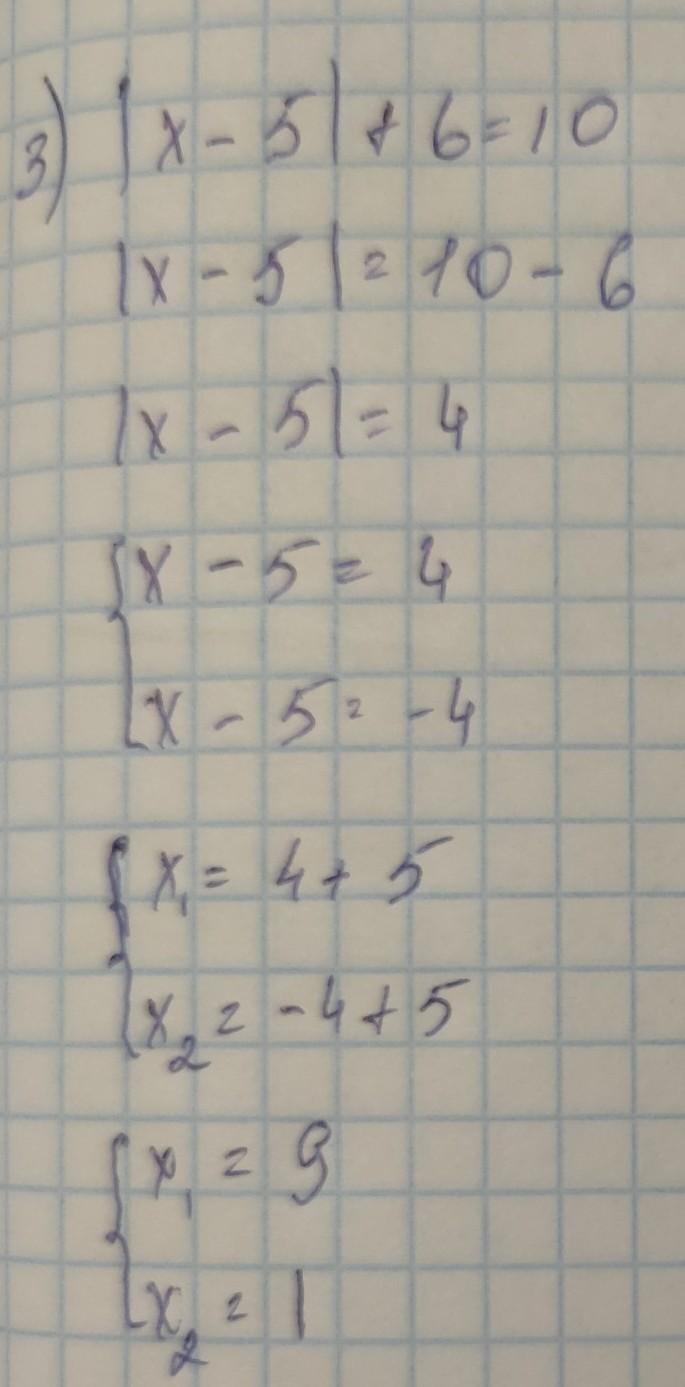 3) |x - 5| + 6 = 10
|x - 5| = 10 - 6
|x - 5| = 4
{ x - 5 = 4
x - 5 = -4
{ x₁ = 4 + 5
x₂ = -4 + 5
{ x₁ = 9
x₂ = 1